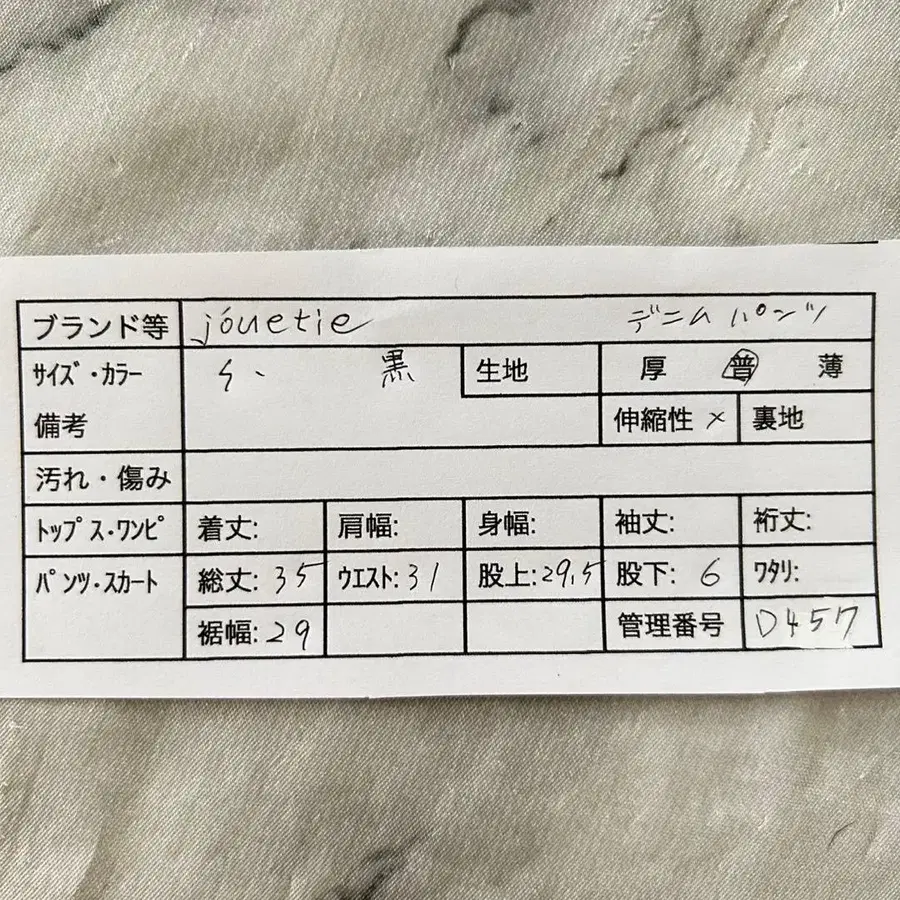 ブランド等 jouetie デニムパンツ
サイズ・カラー S、 黒 生地 厚 普 薄
備考 伸縮性 × 裏地
汚れ・傷み
トップス・ワンピ 着丈: 肩幅: 身幅: 袖丈: 裄丈:
パンツ・スカート 総丈: 35 ウエスト: 31 股上: 29.5 股下: 6 ワタリ:
裾幅: 29 管理番号 D457